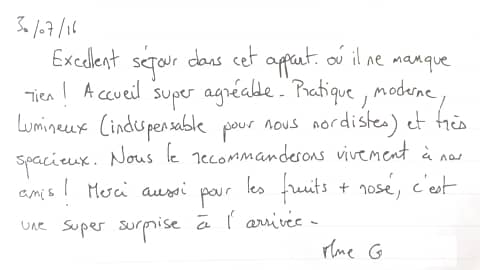 30/07/16
Excellent séjour dans cet appart. où il ne manque
rien! Accueil super agréable. Pratique, moderne,
lumineux (indispensable pour nous nordistes) et très
spacieux. Nous le recommanderons vivement à nos
amis! Merci aussi pour les fruits + rosé, c'est
une super surprise à l'arrivée.
Mme G